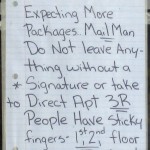 Expecting More
Packages. MailMan
Do Not leave Any-
thing without a
* Signature or take
to Direct Apt 3R
People Have Sticky
fingers- 1st, 2nd floor